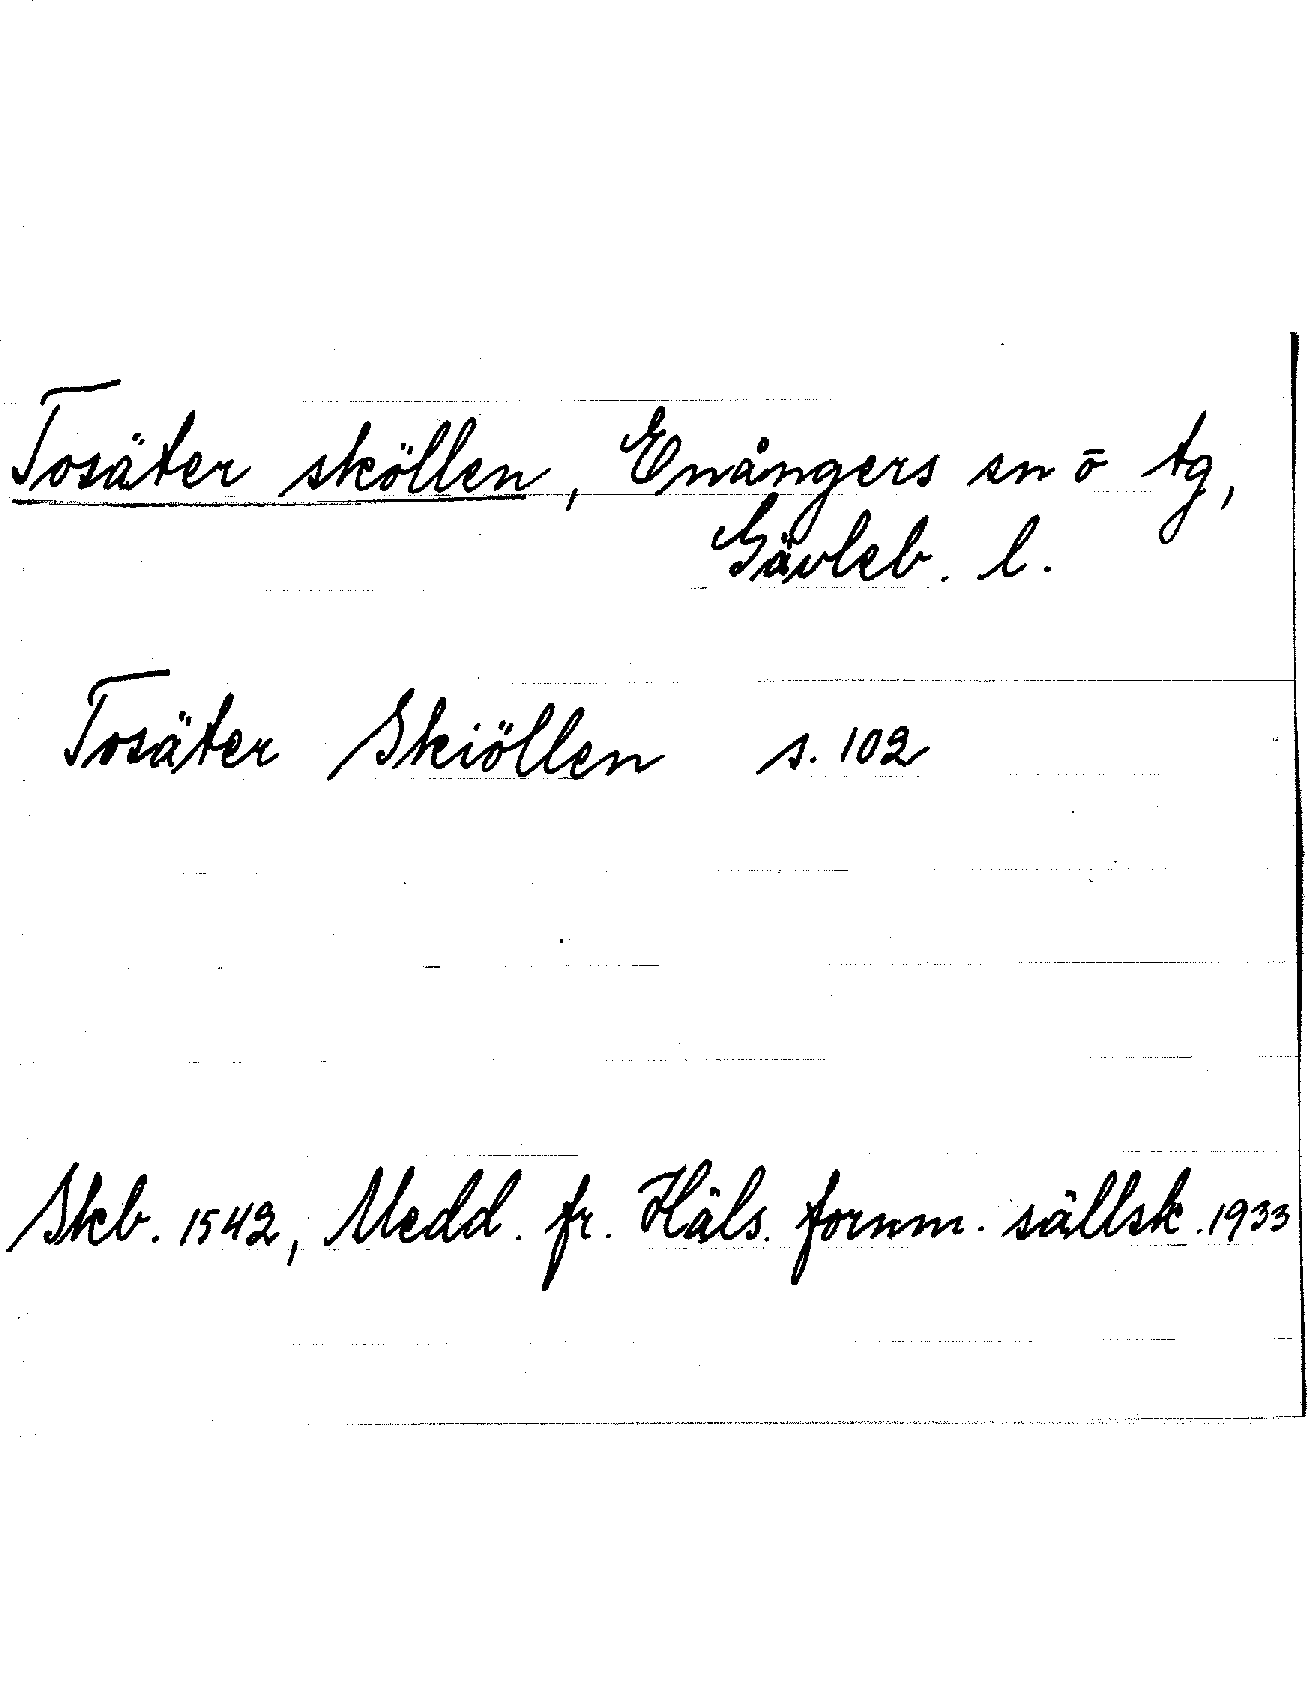 Tosäter sköllen, Enångers sn ō tg,
Gävleb. l.
Tosäter Skiöllen s. 102
Skb. 1542, Medd. fr. Häls. fornm. sällsk. 1933